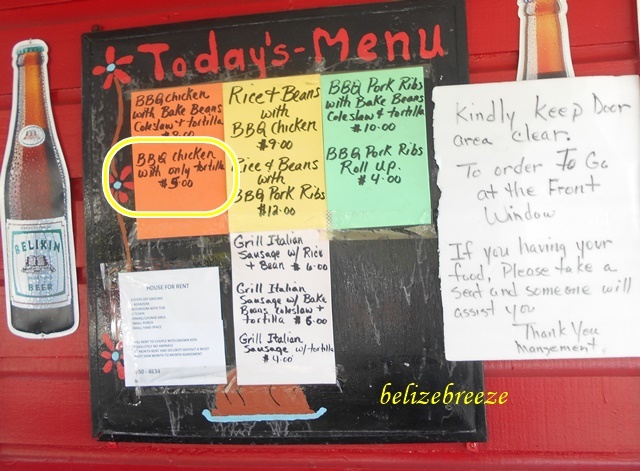 Today's-Menu
BBQ Chicken
with Bake Beans
Coleslaw + tortilla
BBQ chicken
with only tortilla
$5.00
Rice + Beans
with
BBQ Chicken
$9.00
Rice & Beans
with
BBQ Pork Ribs
$12.00
BBQ Pork Ribs
with Bake Beans
Coleslaw & tortilla
$10.00
BBQ Pork Ribs
Roll up.
$4.00
Grill Italian
Sausage w/ Rice
+ Bean $6.00
Grill Italian
Sausage w/ Bake
Beans Coleslaw +
tortilla $6.00
Grill Italian
Sausage w/tortilla
$4.00
HOUSE FOR RENT
BELIKIN
BEER
Kindly Keep Door
area clear.
To order To Go
at the Front
Window
If you having your
food, Please take a
seat and someone will
assist you
Thank You
Mangement
belizebreeze